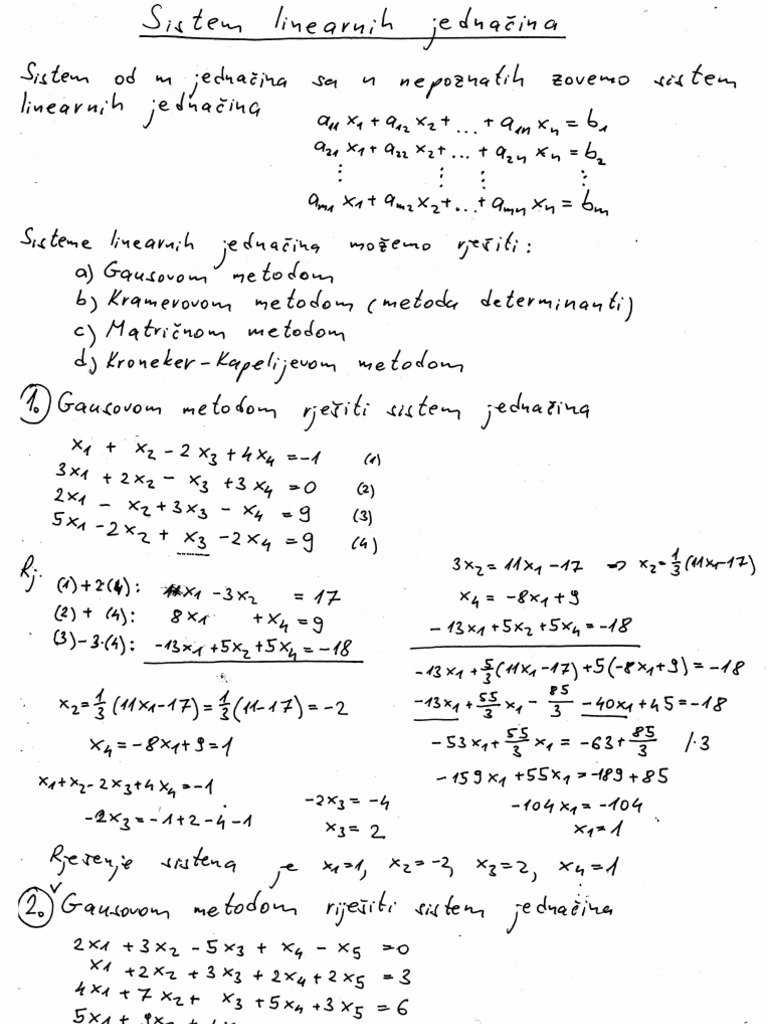 Sistem linearnih jednačina
Sistem od m jednačina sa n nepoznatih zovemo sistem
linearnih jednačina
a11 x1 + a12 x2 + ... + a1n xn = b1
a21 x1 + a22 x2 + ... + a2n xn = b2
⋮ ⋮ ⋮ ⋮
am1 x1 + am2 x2 + ... + amn xn = bm
Sisteme linearnih jednačina možemo rješiti:
a) Gausovom metodom
b) Kramerovom metodom (metoda determinanti)
c) Matričnom metodom
d) Kroneker-Kapelijevom metodom
1. Gausovom metodom rješiti sistem jednačina
x1 + x2 - 2x3 + 4x4 = -1 (1)
3x1 + 2x2 - x3 + 3x4 = 0 (2)
2x1 - x2 + 3x3 - x4 = 9 (3)
5x1 - 2x2 + x3 - 2x4 = 9 (4)
Rj.
(1)+2(4): 11x1 - 3x2 = 17
(2)+ (4): 8x1 + x4 = 9
(3)-3·(4): -13x1 + 5x2 + 5x4 = -18
x2 = 1/3 (11x1-17) = 1/3 (11-17) = -2
x4 = -8x1 + 9 = 1
x1 + x2 - 2x3 + 4x4 = -1
-2x3 = -1+2-4-1
-2x3 = -4
x3 = 2
3x2 = 11x1 - 17 => x2 = 1/3 (11x1-17)
x4 = -8x1 + 9
-13x1 + 5x2 + 5x4 = -18
-13x1 + 5/3 (11x1-17) + 5(-8x1+9) = -18
-13x1 + 55/3 x1 - 85/3 - 40x1 + 45 = -18
-53x1 + 55/3 x1 = -63 + 85/3 /·3
-159x1 + 55x1 = -189 + 85
-104x1 = -104
x1 = 1
Rješenje sistema je x1=1, x2=-2, x3=2, x4=1
2. Gausovom metodom riješiti sistem jednačina
2x1 + 3x2 - 5x3 + x4 - x5 = 0
x1 + 2x2 + 3x3 + 2x4 + 2x5 = 3
4x1 + 7x2 + x3 + 5x4 + 3x5 = 6
5x1 + 9x2 +